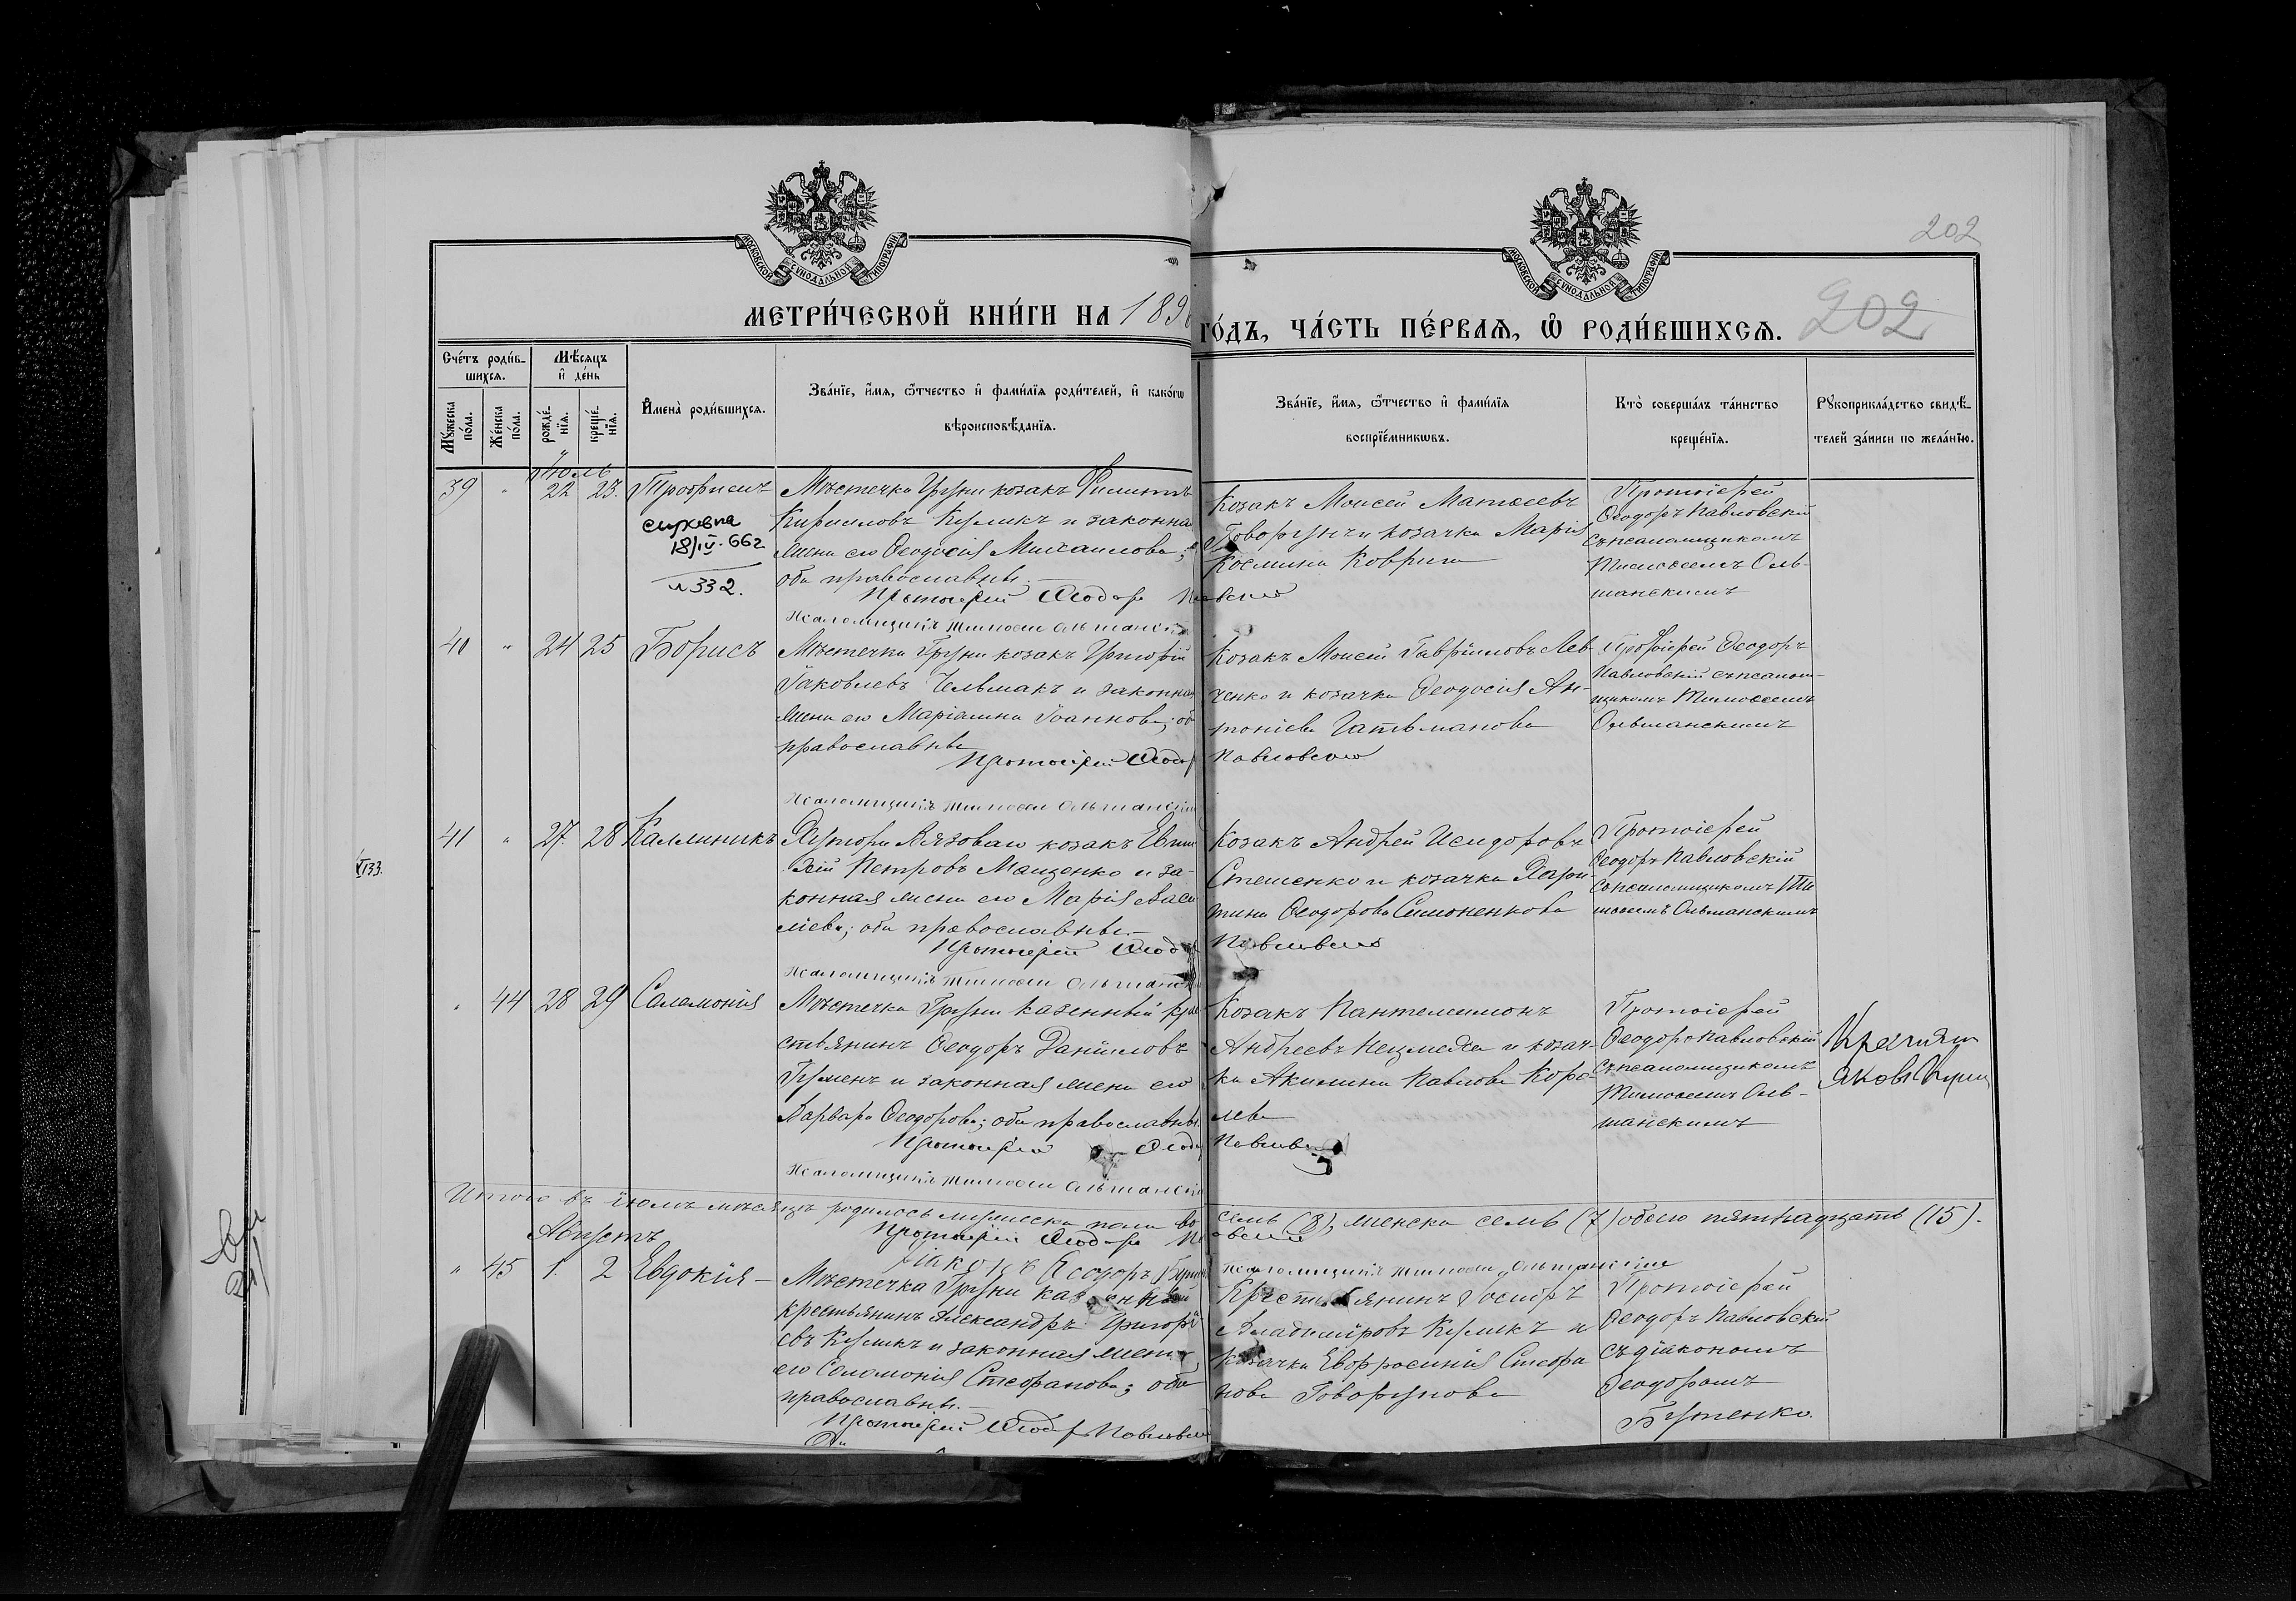 202
202
МОСКОВСКОЙ СУНОДАЛЬНОЙ ТИПОГРАФІИ
МОСКОВСКОЙ СУНОДАЛЬНОЙ ТИПОГРАФІИ
МЕТРИ́ЧЕСКОЙ КНИ́ГИ НА 189
ГО́ДЪ, ЧА́СТЬ ПЕ́РВАѦ, Ѡ РОДИ́ВШИХСѦ.
Сче́тъ роди́в-
шихсѧ.
Мѣ́сѧцъ
и҆ де́нь
Мꙋ́жеска по́ла.
Же́нска по́ла.
рожде́-
нїѧ.
креще́-
нїѧ.
И҆мена̀ роди́вшихсѧ.
Зва́нїе, и҆́мѧ, ѻ҆́тчество и҆ фами́лїѧ роди́телей, и҆ како́гѡ
вѣроисповѣ́данїѧ.
Зва́нїе, и҆́мѧ, ѻ҆́тчество и҆ фами́лїѧ
воспрїе́мникѡвъ.
Кто̀ соверша́лъ та́инство
креще́нїѧ.
Рꙋкоприкла́дство свидѣ́-
телей за́писи по жела́нїю.
Іюль
39 " 22 23. Трофимъ
справка
18/IV-66г
№332.
Мѣстечка Груни козакъ Филиппъ
Кириловъ Куликъ и законная
жена его Ѳеодосія Михаилова;
оба православные.
Протоіерей Ѳеодоръ Павловскій
Псаломщикъ Тимоѳей Ольшанскій
Козакъ Моисей Матѳеевъ
Говорунъ и козачка Марія
Косьмина Коврига
Протоіерей
Ѳеодоръ Павловскій
съ псаломщикомъ
Тимоѳеемъ Оль-
шанскимъ
40 " 24 25 Борисъ
Мѣстечка Груни козакъ Григорій
Іаковлевъ Чельмакъ и законная
жена его Маріамна Іоаннова; оба
православные
Протоіерей Ѳеодоръ Павловскій
Псаломщикъ Тимоѳей Ольшанскій
Козакъ Моисей Гавріиловъ Лев-
ченко и козачка Ѳеодосія Ан-
тоніева Гатьманова
Протоіерей Ѳеодоръ
Павловскій съ псалом-
щикомъ Тимоѳеемъ
Ольшанскимъ
VI 33.
41 " 27. 28 Каллиникъ
Хутора Вязоваго козакъ Евти
хій Петровъ Мащенко и за-
конная жена его Марія Васи
ліева; оба православные.
Протоіерей Ѳеодоръ Павловскій
Псаломщикъ Тимоѳей Ольшанскій
Козакъ Андрей Исидоровъ
Стешенко и козачка Хари-
тина Ѳеодорова Симоненкова
Протоіерей
Ѳеодоръ Павловскій
съ псаломщикомъ Ти
моѳеемъ Ольшанскимъ
" 44 28 29 Саломонія
Мѣстечка Груни казенный кре
стьянинъ Ѳеодоръ Даніиловъ
и законная жена его
Варвара Ѳеодорова; оба православные.
Протоіерей Ѳеодоръ Павловскій
Псаломщикъ Тимоѳей Ольшанскій
Козакъ Пантелеимонъ
Андреевъ и козач-
ка Акилина Павлова Коро-
лева
Протоіерей
Ѳеодоръ Павловскій
съ псаломщикомъ
Тимоѳеемъ Оль-
шанскимъ
Яковъ
Итого въ іюлѣ мѣсяцѣ родилось мужеска пола во
семь (8), женска семь (7) обоего пятнадцать (15).
Протоіерей Ѳеодоръ Павловскій
Діаконъ Ѳеодоръ
Псаломщикъ Тимоѳей Ольшанскій
Августъ
" 45 1. 2 Евдокія
Мѣстечка Груни казенный
крестьянинъ Александръ Григорі
евъ Куликъ и законная жена
его Соломонія Стефанова; оба
православные.
Протоіерей Ѳеодоръ Павловскій
Крестьянинъ Іосифъ
Владиміровъ Куликъ и
козачка Евфросинія Стефа
нова Говорунова
Протоіерей
Ѳеодоръ Павловскій
съ діакономъ
Ѳеодоромъ
Бутенко.